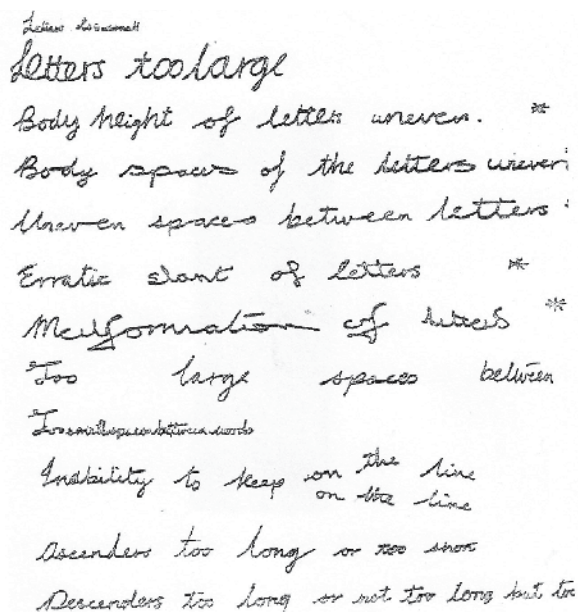 Letters too small
Letters too large
Body height of letters uneven. *
Body spaces of the letters uneven
Uneven spaces between letters
Erratic slant of letters *
Malformation of letters *
Too large spaces between
Too small spaces between words
Inability to keep on the line
on the line
Ascenders too long or too short
Descenders too long or not too long but too